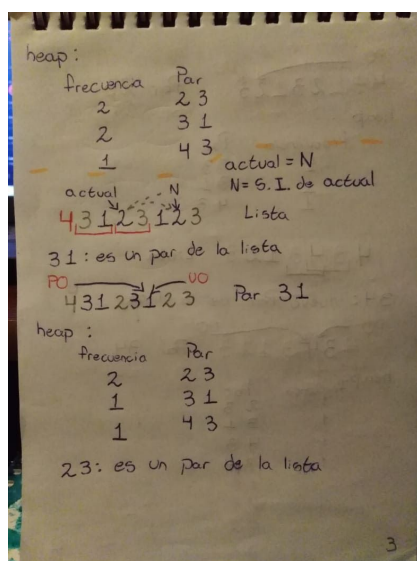 heap :
frecuencia Par
2 2 3
2 3 1
1 4 3
actual = N
N = S. I. de actual
actual N
4 3 1 2 3 1 2 3 Lista
3 1 : es un par de la lista
PO UO
4 3 1 2 3 1 2 3 Par 3 1
heap :
frecuencia Par
2 2 3
1 3 1
1 4 3
2 3 : es un par de la lista
3